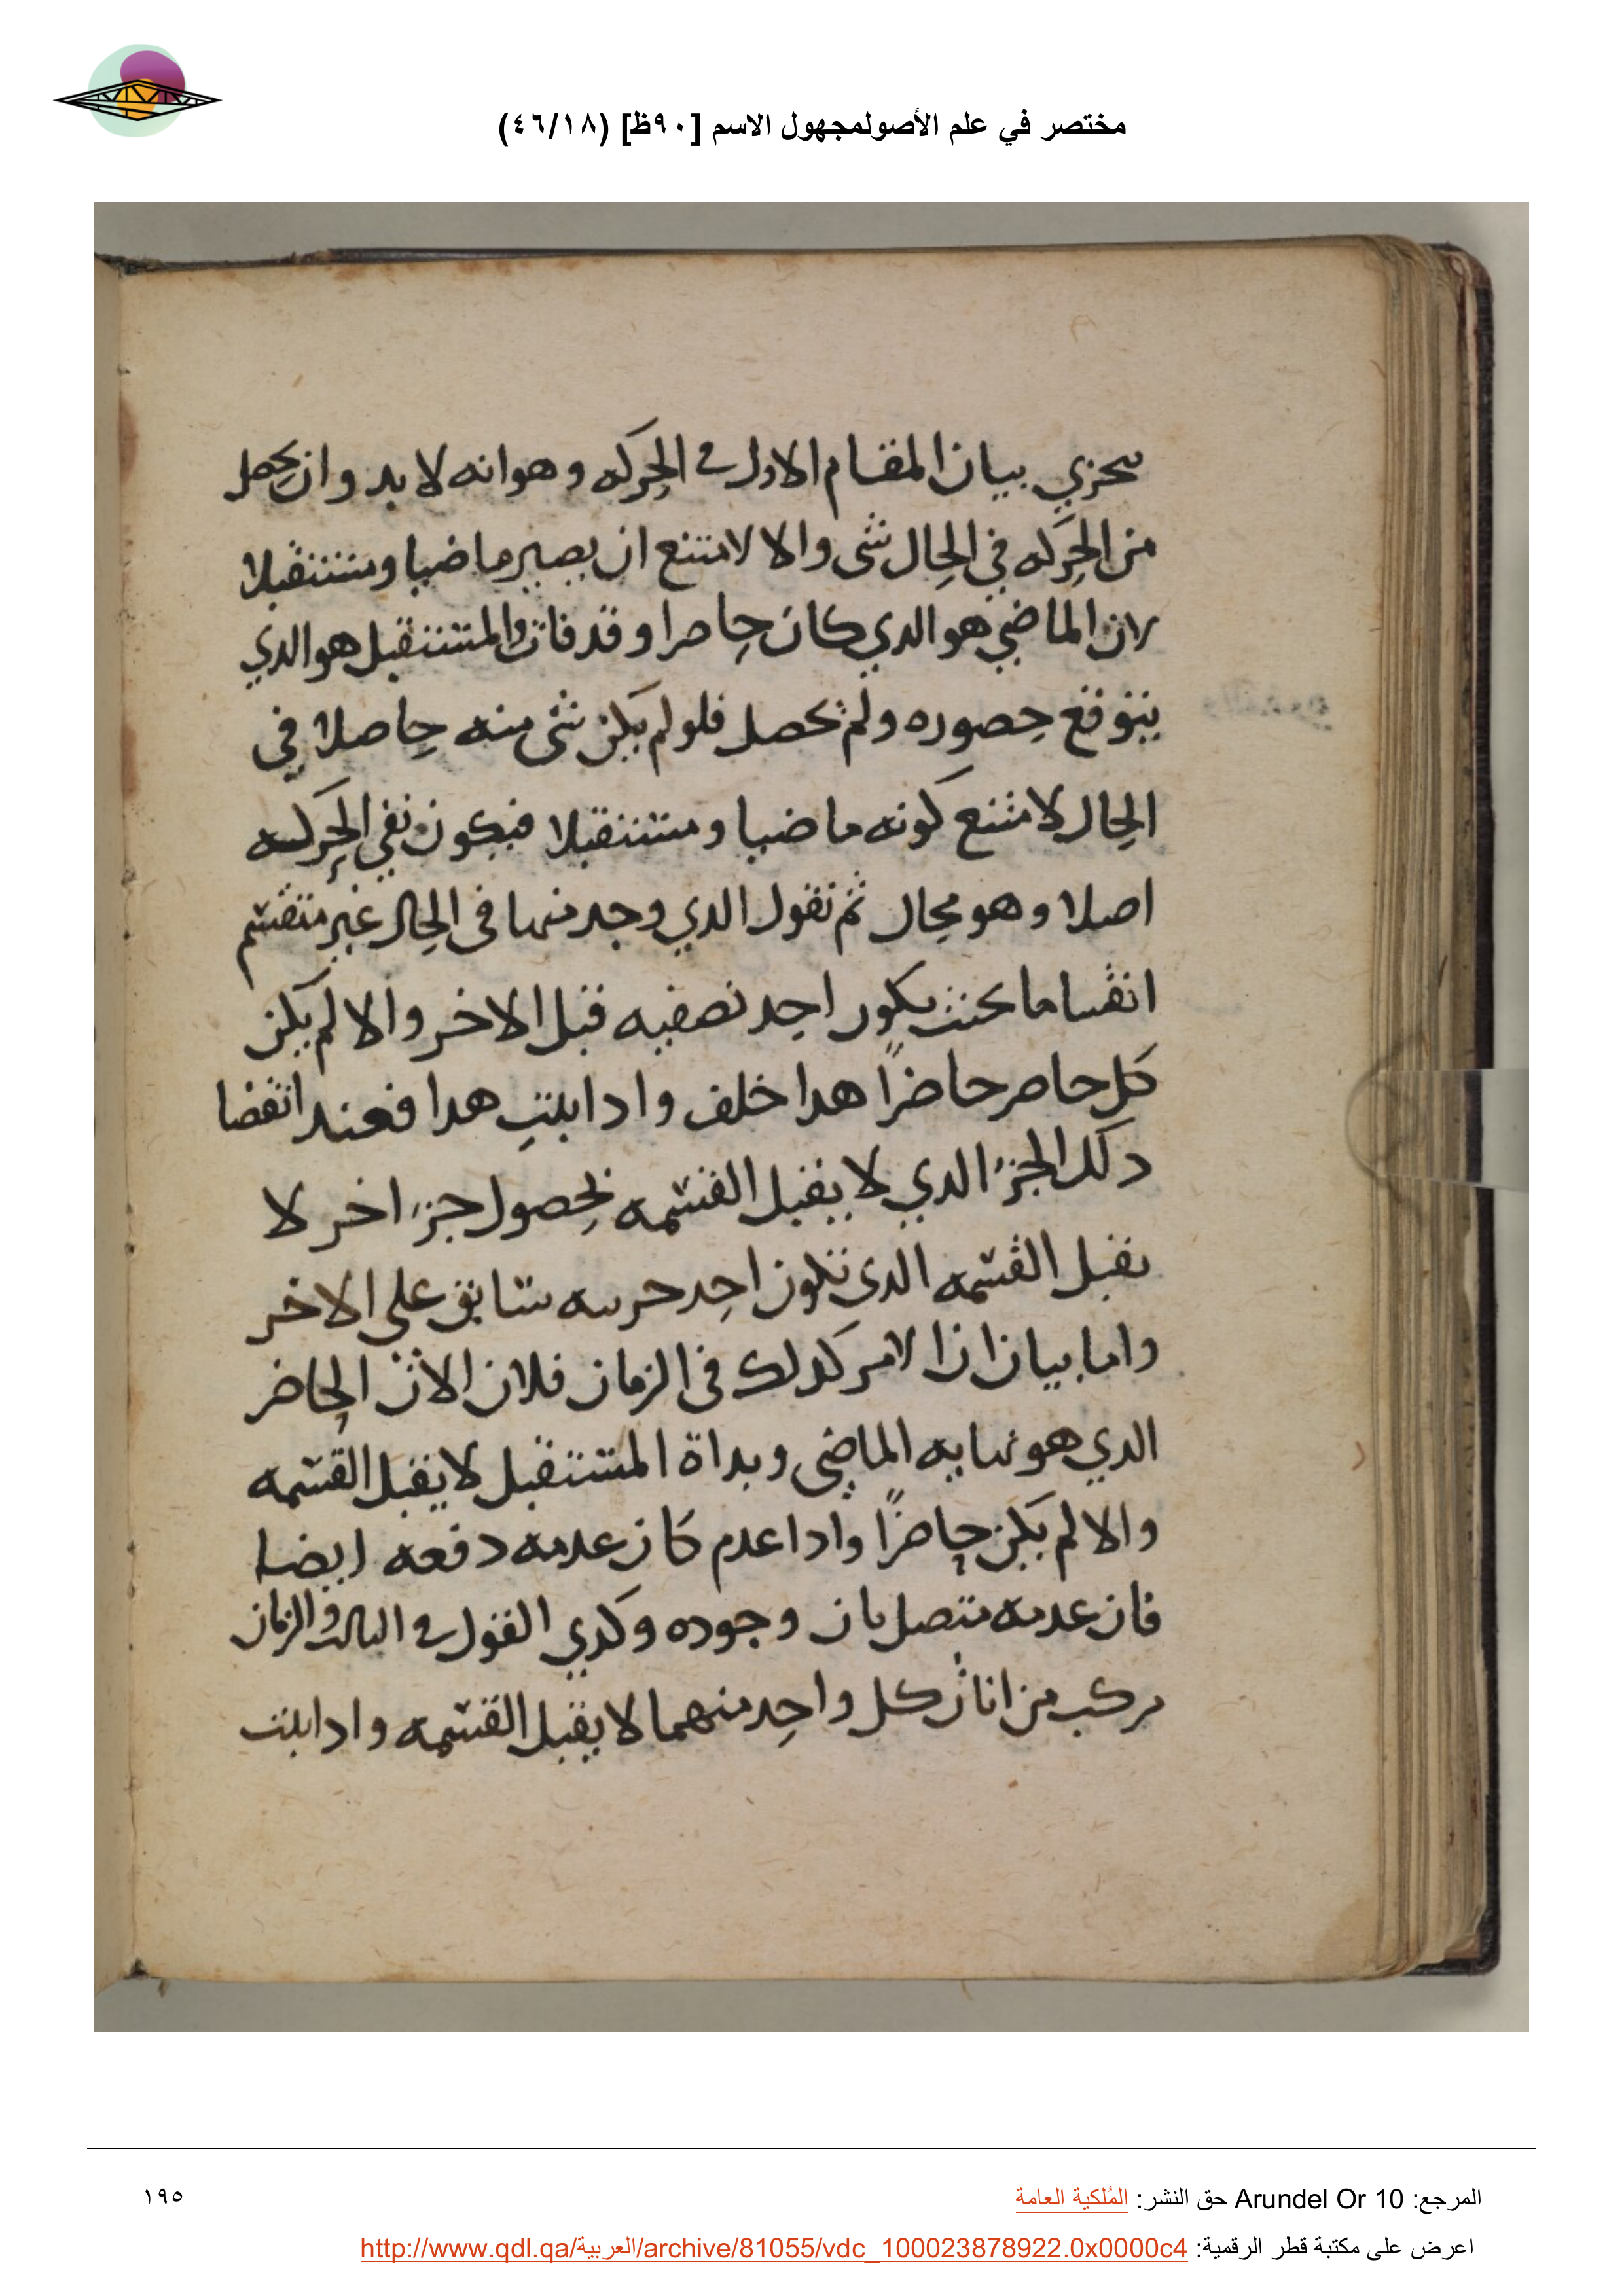 مختصر في علم الأصولمجهول الاسم [٩٠ظ] (٤٦/١٨)
بيان المقام الاول في الحركه وهو انه لا بد وان يحصل
من الحركه في الحال شى والا لامتنع ان يصير ماضيا ومستقبلا
لان الماضي هو الدي كان حاصرا وقد فات والمستقبل هو الدي
يتوقع حصوره ولم يحصل فلو لم يكن شى منه حاصلا في
الحال لامتنع كونه ماضيا ومستقبلا فيكون نفي الحركه
اصلا وهو محال ثم نقول الدي وجد منها فى الحال غير منقسم
انقساما بحيث يكون احد نصفيه قبل الاخر والا لم يكن
كل حاصر حاضرًا هدا خلف وادا ثبت هدا فعند انقضا
دلك الجزء الدي لا يقبل القسمه يحصول جزء اخر لا
يقبل القسمه الدى تكون احد سابق على الاخر
واما بيان ان الامر كدلك فى الزمان فلان الان الحاضر
الدي هو نهايه الماضى وبداة المستقبل لا يقبل القسمه
والا لم يكن حاضرًا وادا عدم كان عدمه دفعه ايضا
فان عدمه متصل بان وجوده وكدي القول في الثالث والزمان
مركب من انات كل واحد منهما لا يقبل القسمه وادا ثبت
المرجع: Arundel Or 10 حق النشر: المُلكية العامة
١٩٥
اعرض على مكتبة قطر الرقمية: http://www.qdl.qa/العربية/archive/81055/vdc_100023878922.0x0000c4